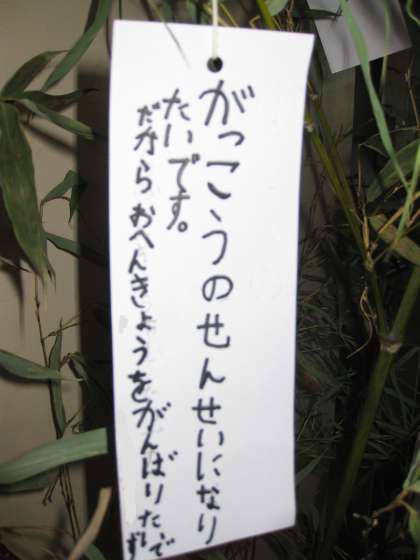 がっこうのせんせいになり
たいです。
だから おへんきょうをがんばりたいです